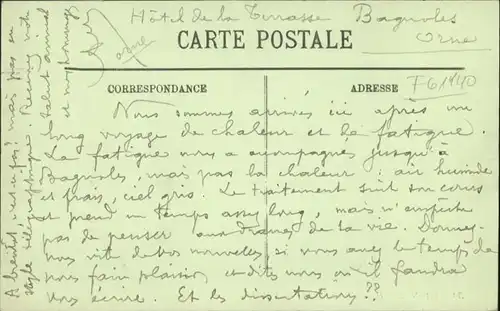 Hôtel de la Terrasse Bagnoles
Orne
CARTE POSTALE
CORRESPONDANCE
ADRESSE
F61140
Nous sommes arrivés ici après un
long voyage de chaleur et de fatigue.
La fatigue nous a accompagnés jusqu'à
Bagnoles, mais pas la chaleur : air humide
et frais, ciel gris. Le traitement suit son cours
et prend un temps assez long, mais n'empêche
pas de penser aux drames de la vie. Donnez-
nous vite de vos nouvelles, si vous avez le temps de
nous faire plaisir, et dites nous où il faudra
vous écrire. Et les dissertations ??
A bientôt, mais pas en
style télégraphique. Recevez
salut amical
et